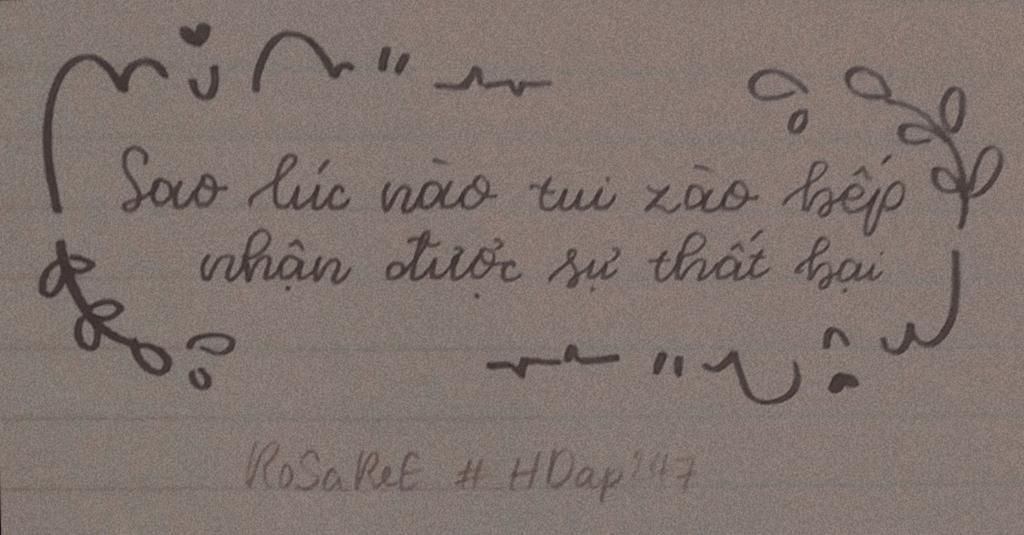 Sao lúc nào tui zào bếp
nhận được sự thất bại
RoSaReE # HDap247